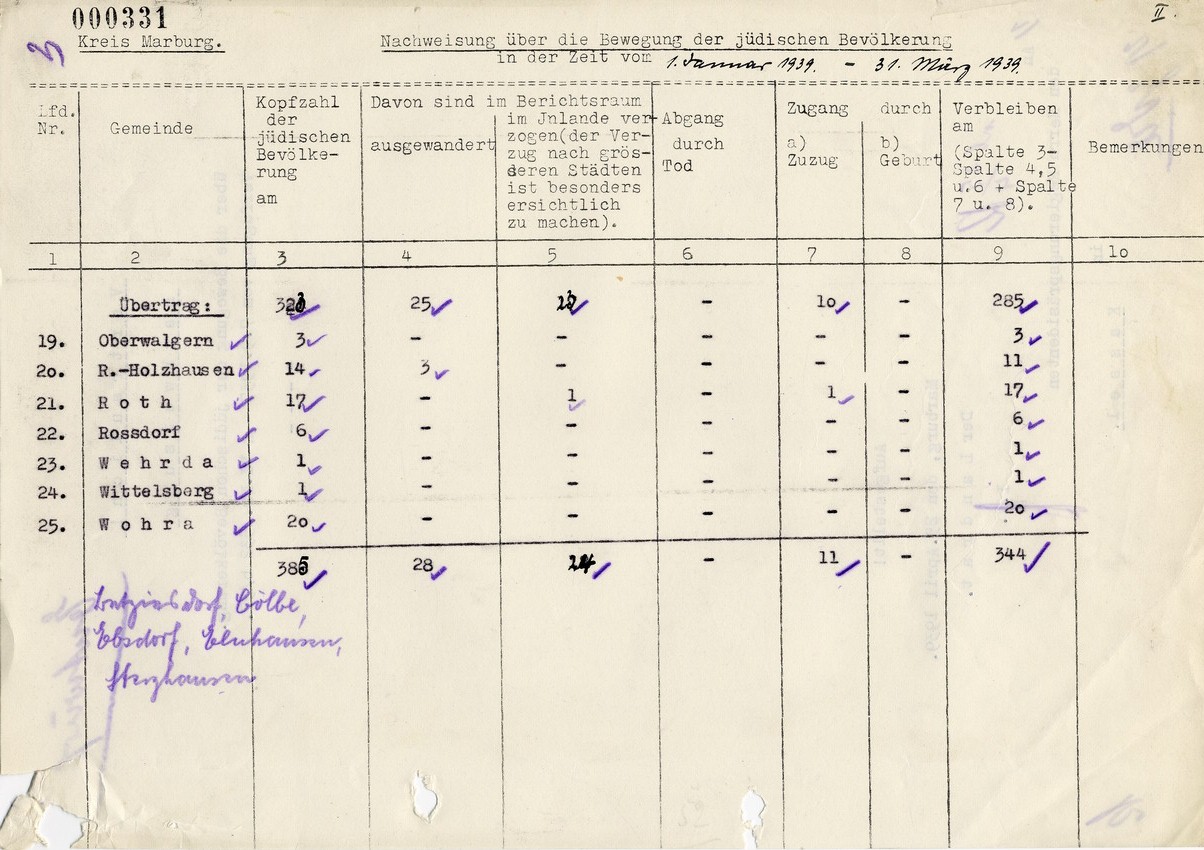 000331
II.
3
Kreis Marburg.
Nachweisung über die Bewegung der jüdischen Bevölkerung
in der Zeit vom 1. Januar 1939. - 31. März 1939.
Lfd. Nr.
Gemeinde
Kopfzahl der jüdischen Bevölke- rung am
Davon sind im Berichtsraum
ausgewandert
im Jnlande ver- zogen(der Ver- zug nach grös- deren Städten ist besonders ersichtlich zu machen).
Abgang durch Tod
Zugang durch
a) Zuzug
b) Geburt
Verbleiben am (Spalte 3- Spalte 4,5 u.6 + Spalte 7 u. 8).
Bemerkungen
1 2 3 4 5 6 7 8 9 lo
Übertrag: 323 25 23 - lo - 285
19. Oberwalgern 3 - - - - - 3
2o. R.-Holzhausen 14 3 - - - - 11
21. R o t h 17 - 1 - 1 - 17
22. Rossdorf 6 - - - - - 6
23. W e h r d a 1 - - - - - 1
24. Wittelsberg 1 - - - - - 1
25. W o h r a 2o - - - - - 2o
385 28 24 - 11 - 344
Betziesdorf, Cölbe,
Ebsdorf, Elnhausen,
Sterzhausen